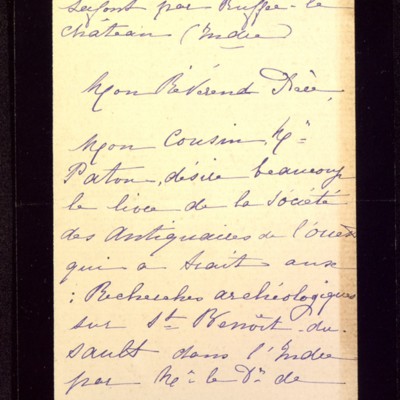 par Ruffec-le
château (Indre)
Mon Révérend Père,
Mon Cousin, Mr
Paton, désire beaucoup
le livre de la Société
des Antiquaires de l'ouest
qui a trait aux
: Recherches archéologiques
sur St Benoît-du-
sault dans l'Indre
par Mr le Dr de